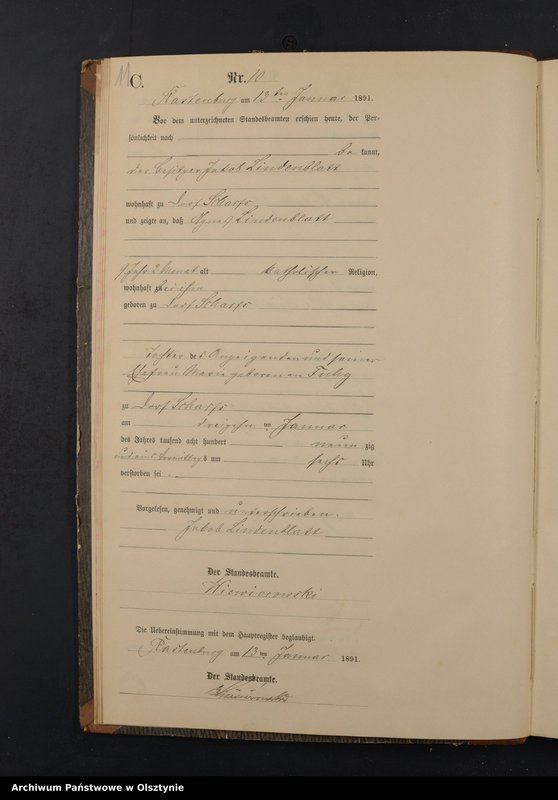 11
C.
Nr. 10
Rastenburg am 13ten Januar 1891.
Vor dem unterzeichneten Standesbeamten erschien heute, der Per-
sönlichkeit nach
be kannt,
der Besitzer Jakob Lindenblatt
wohnhaft zu Dorf Scharfs
und zeigte an, daß Agnes Lindenblatt
1 Jahr 2 Monat alt katholischer Religion,
wohnhaft zu bei ihm
geboren zu Dorf Scharfs
Tochter des Anzeigenden und seiner
Ehefrau Marie geborenen
zu Dorf Scharfs
am dreizehn ten Januar
des Jahres tausend acht hundert neun zig
und eins Vormittags um sechs Uhr
verstorben sei.
Vorgelesen, genehmigt und unterschrieben.
Jakob Lindenblatt
Der Standesbeamte.
Wiewiorowski
Die Uebereinstimmung mit dem Hauptregister beglaubigt.
Rastenburg am 13ten Januar 1891.
Der Standesbeamte.
Wiewiorowski
Archiwum Państwowe w Olsztynie